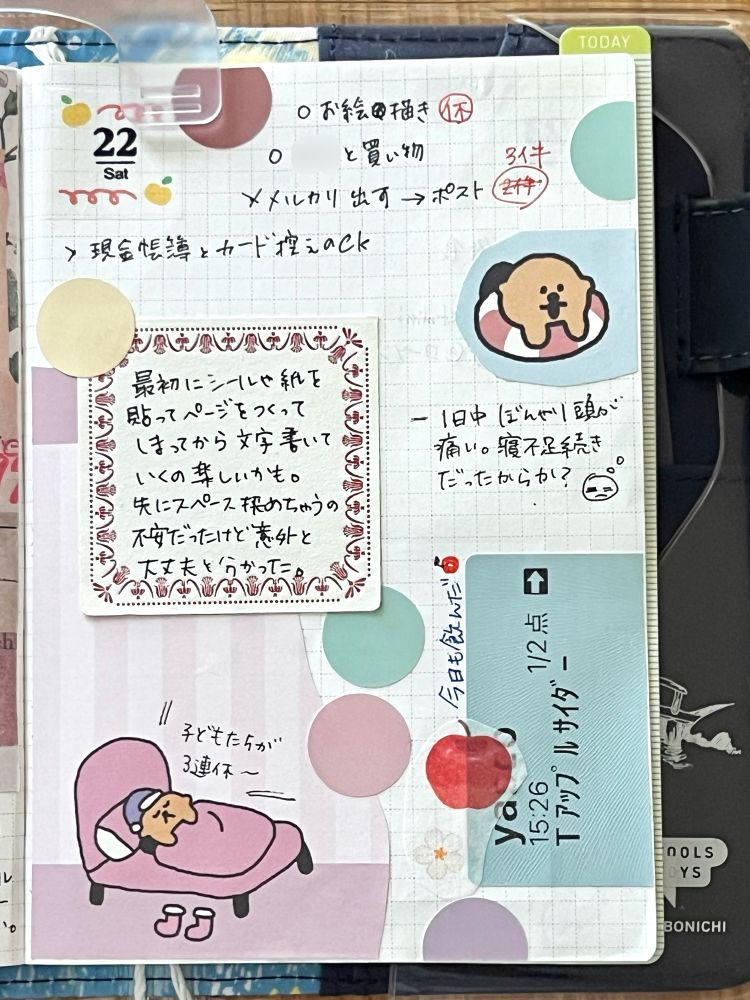 TODAY
22
Sat
○ お絵描き 休
○ と買い物
× メルカリ出す → ポスト 3件
> 現金帳簿とカード控えのCK
最初にシールや紙を
貼ってページをつくって
しまってから文字書いて
いくの楽しいかも。
先にスペース埋めちゃうの
不安だったけど意外と
大丈夫と分かった。
− 1日中ぼんやり頭が
痛い。寝不足続き
だったからか?
今日も飲んだ
1/2点
Tアップルサイダー
15:26
ya
子どもたちが
3連休〜
OOLS
OYS
BONICHI